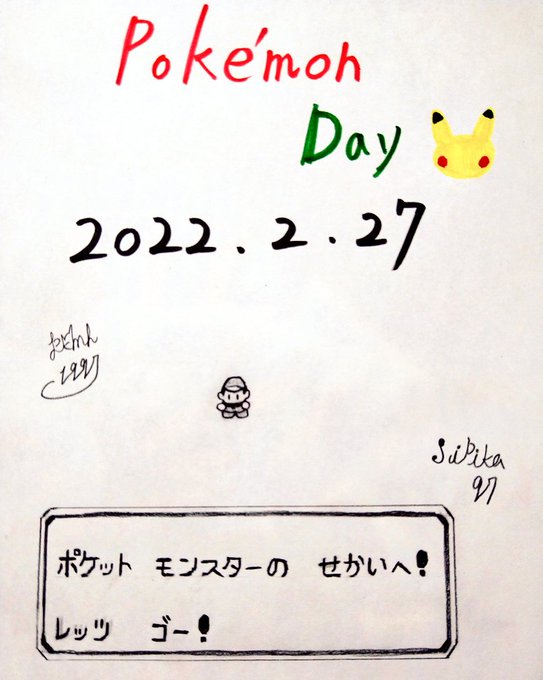 Pokémon
Day
2022.2.27
1997
SuiPika
97
ポケット モンスターの せかいへ!
レッツ ゴー!